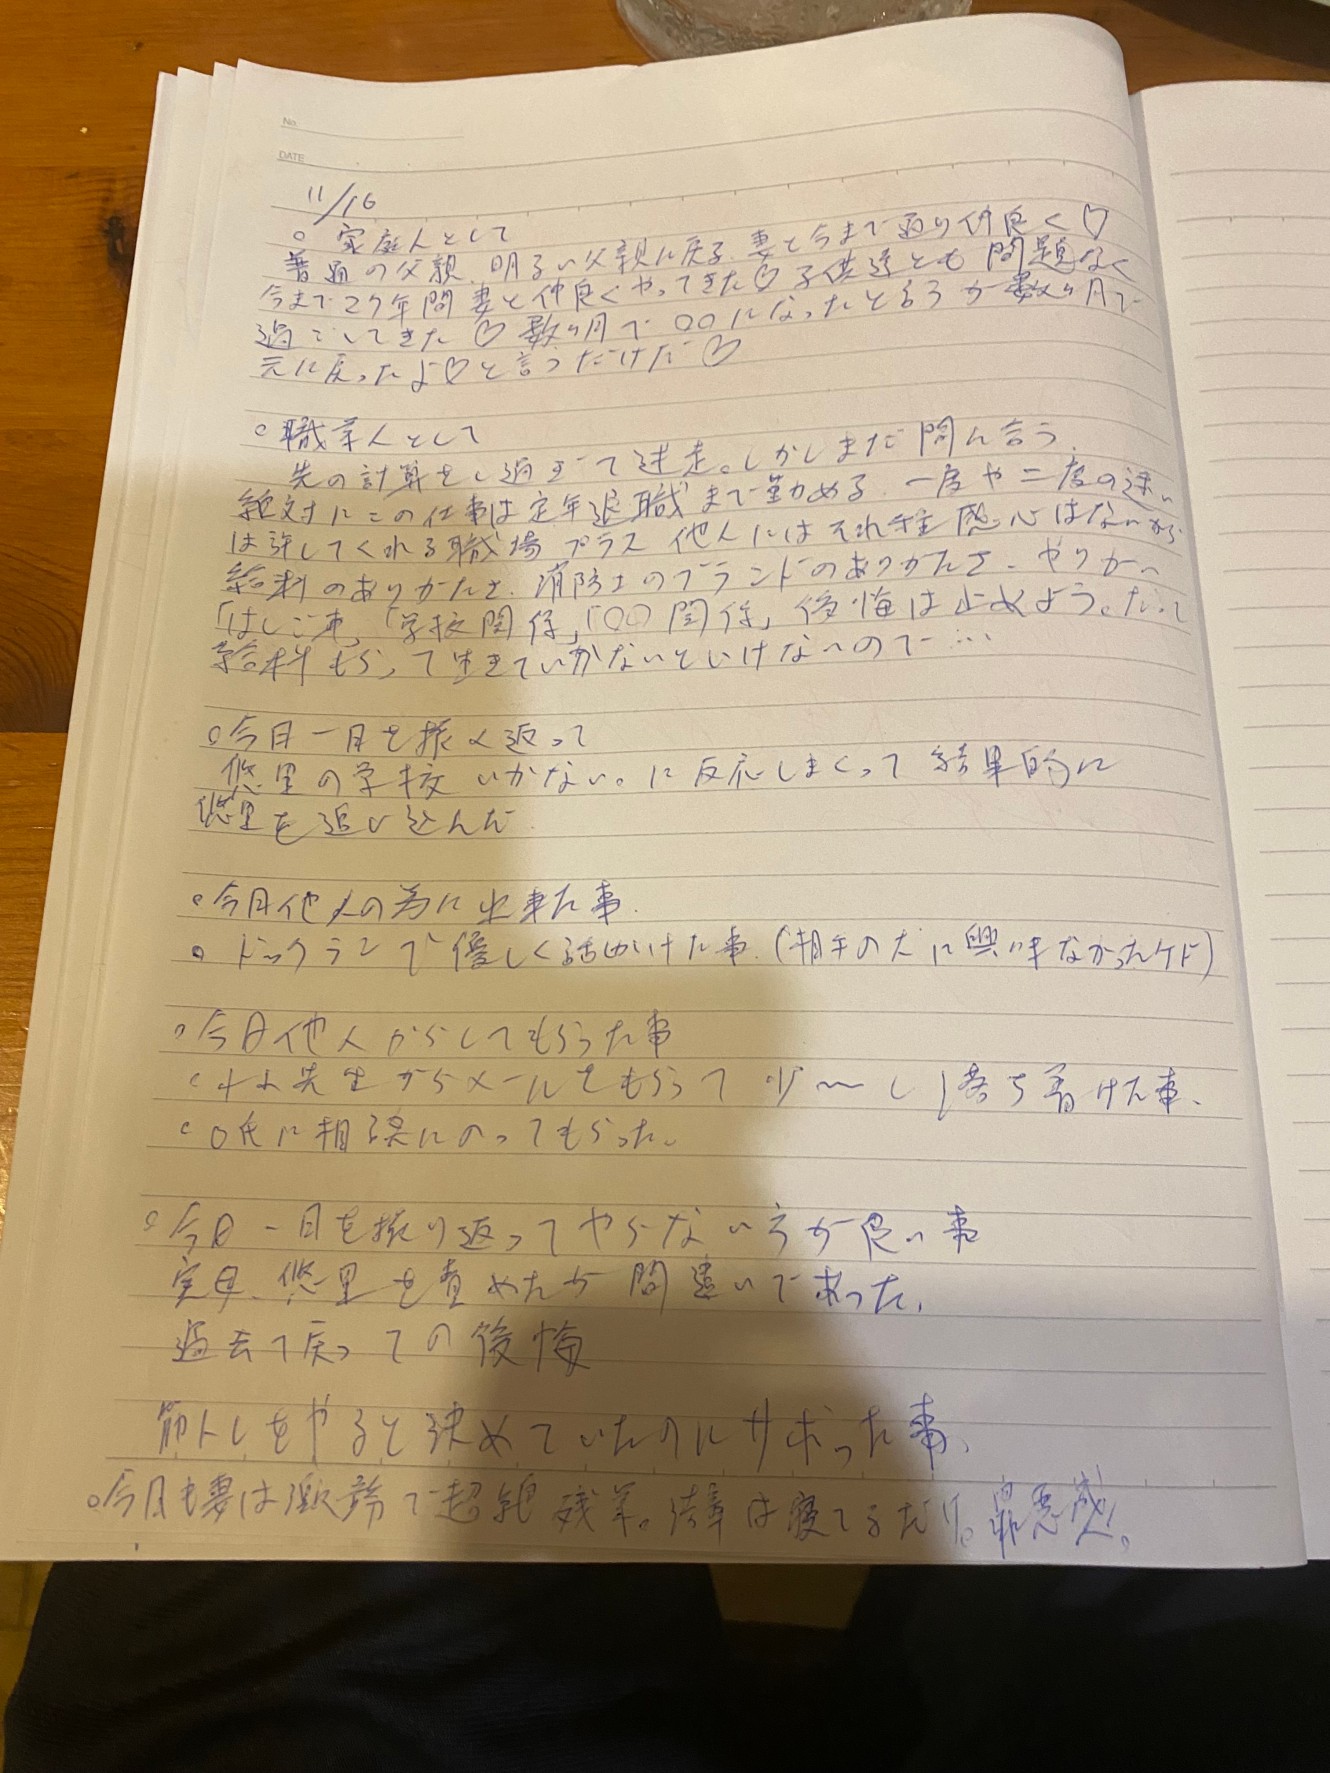 No.
DATE
11/16
○ 家庭人として
普通の父親、明るい父親に戻る、妻と今まで通り仲良く♡
今まで27年間妻と仲良くやってきた♡子供達とも問題なく
過ごしてきた♡数ヶ月で○○になったと言うが数ヶ月で
元に戻ったよ♡と言うだけだ♡
○職業人として
先の計算をし過ぎて迷走。しかしまだ間に合う、
絶対にこの仕事は定年退職まで勤める、一度や二度の迷い
は許してくれる職場 プラス 他人にはそれ程感心はないから
給料のありがたさ、消防士のブランドのありがたさ、やりがい
「はしご車」「学校関係」「○○関係」後悔は止めよう。だって
給料もらって生きていかないといけないので…
○今日一日を振く返って
悠里の学校いかない。に反応しまくって結果的に
悠里を追い込んだ
○今日他人の為に出来た事、
○ドックランで優しく話かけた事、(相手の犬に興味なかったケド)
○今日他人からしてもらった事
○ 先生からメールをもらって少〜し落ち着けた事、
○ O氏に相談にのってもらった。
○今日一日を振り返ってやらない方が良い事
実母、悠里を責めたが間違いであった、
過去て戻っての後悔
筋トレをやると決めていたのにサボった事、
○今日も妻は激務で超絶残業。 は寝てるだけ。罪悪感!。